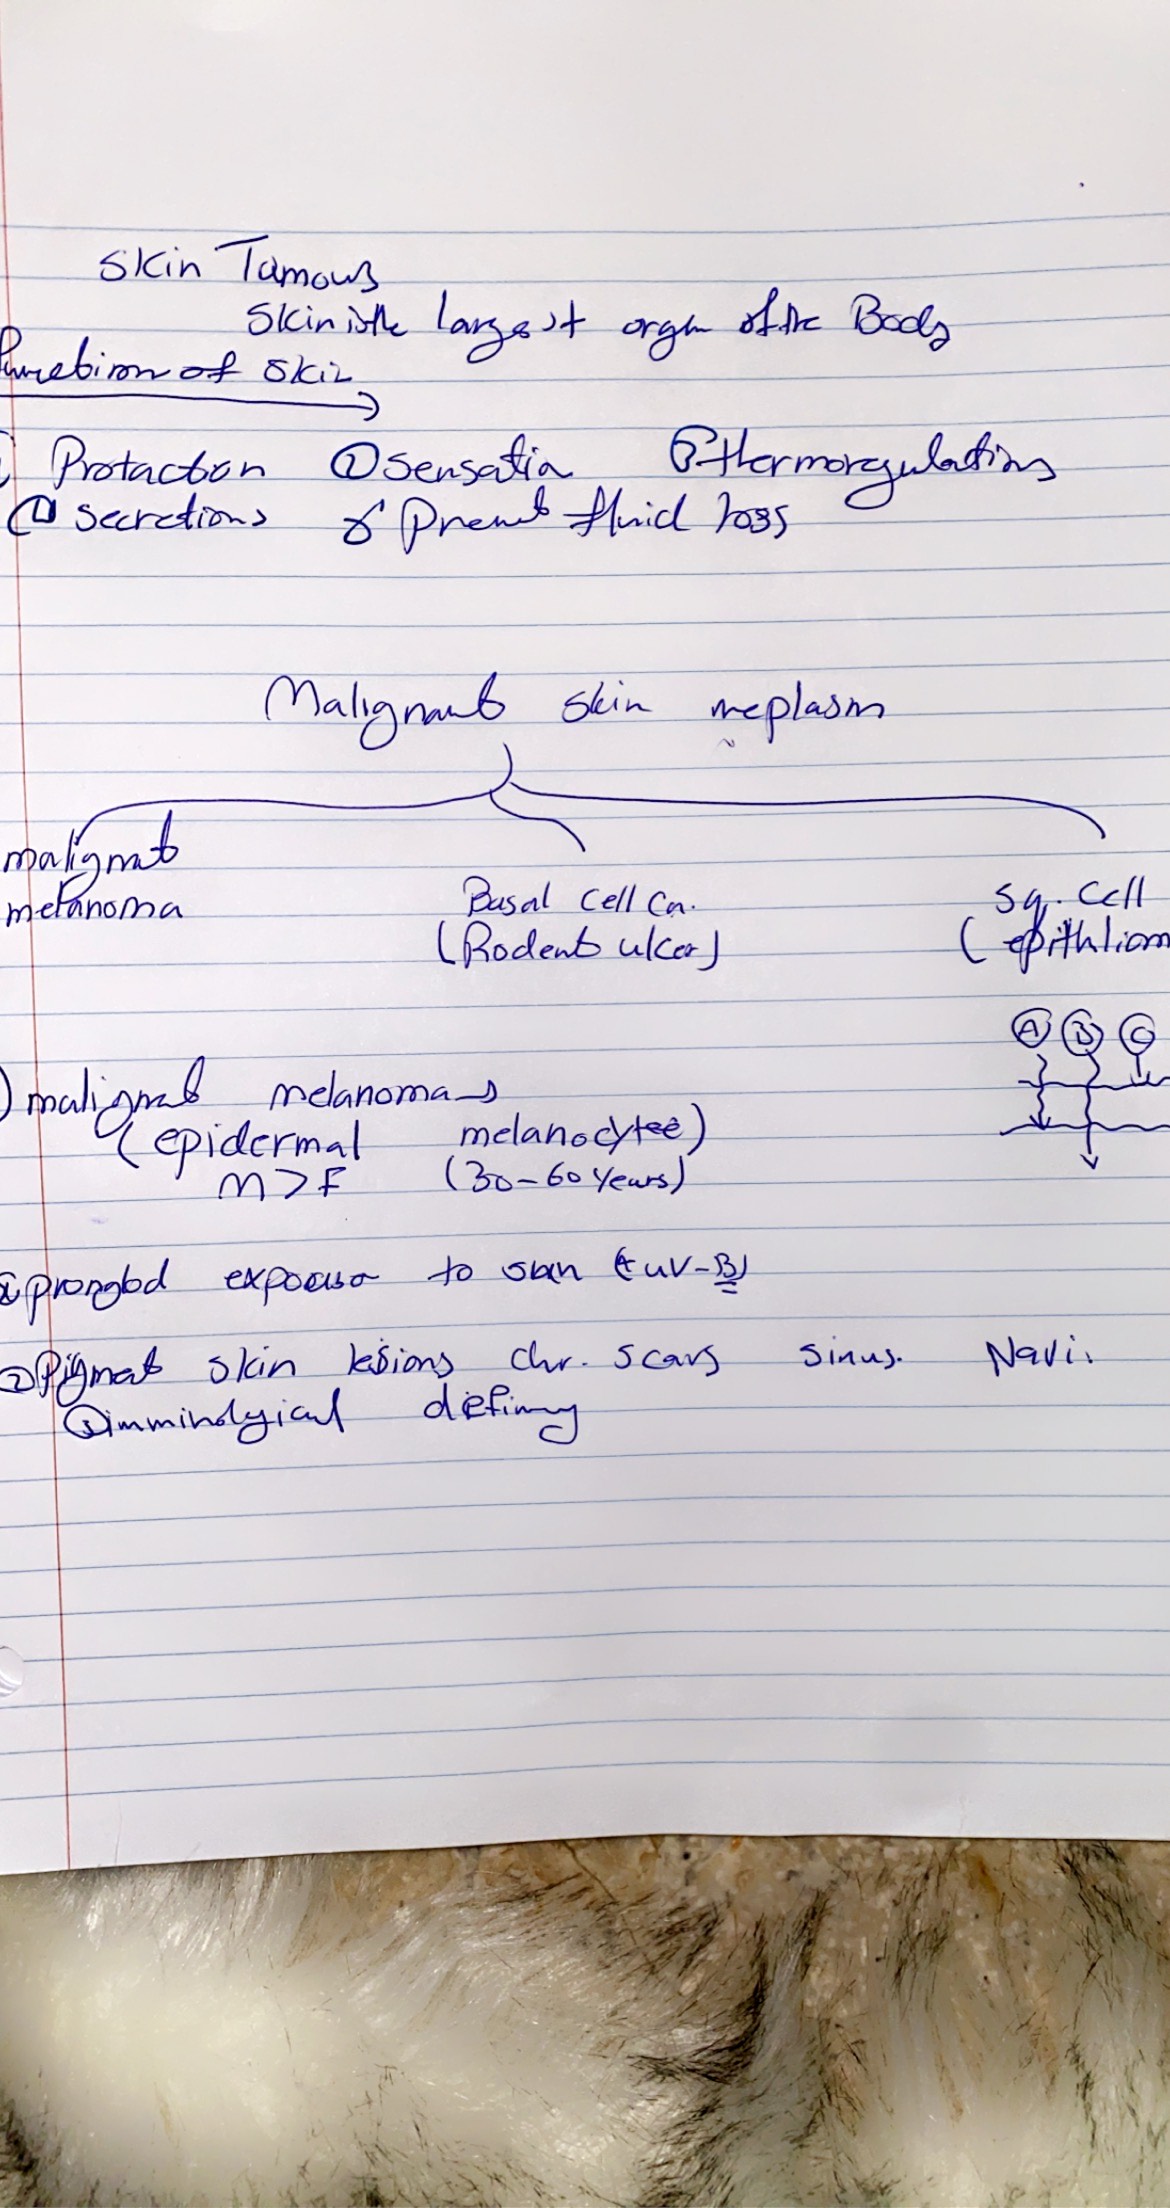 Skin Tamous
Skin is the largest organ of the Body
Function of skin
Protaction ② Sensation ③ thermoregulations
④ secretions 5 Prevent fluid loss
Malignant skin neplasm
malignat
melanoma
Basal Cell Ca.
(Rodent ulcer)
Sq. Cell
(epithliom
A B C
) malignat melanoma
(epidermal melanocytee)
M > F (30-60 Years)
prongbd exposuo to sun (UV-B)
② Pigmat skin lesions chr. scars sinus. Navi.
③ imminolgical